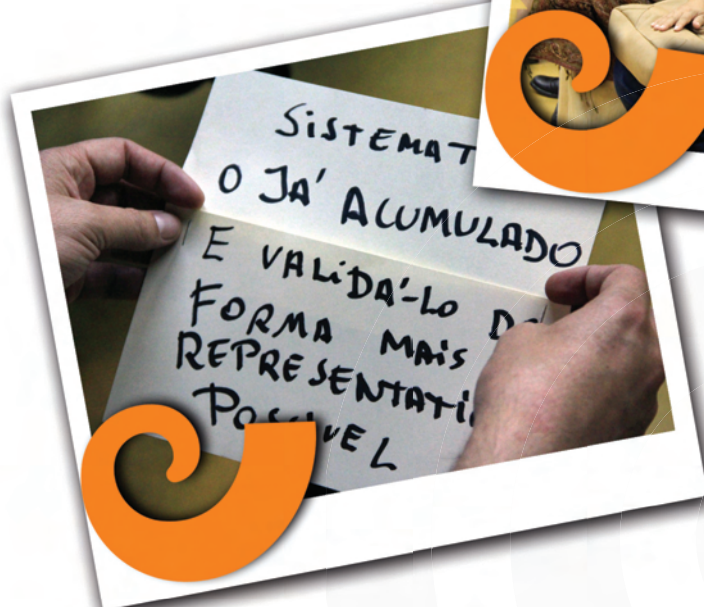 SISTEMAT
O JÁ ACUMULADO
E VALIDÁ-LO DE
FORMA MAIS
REPRESENTATI
POSSIVEL